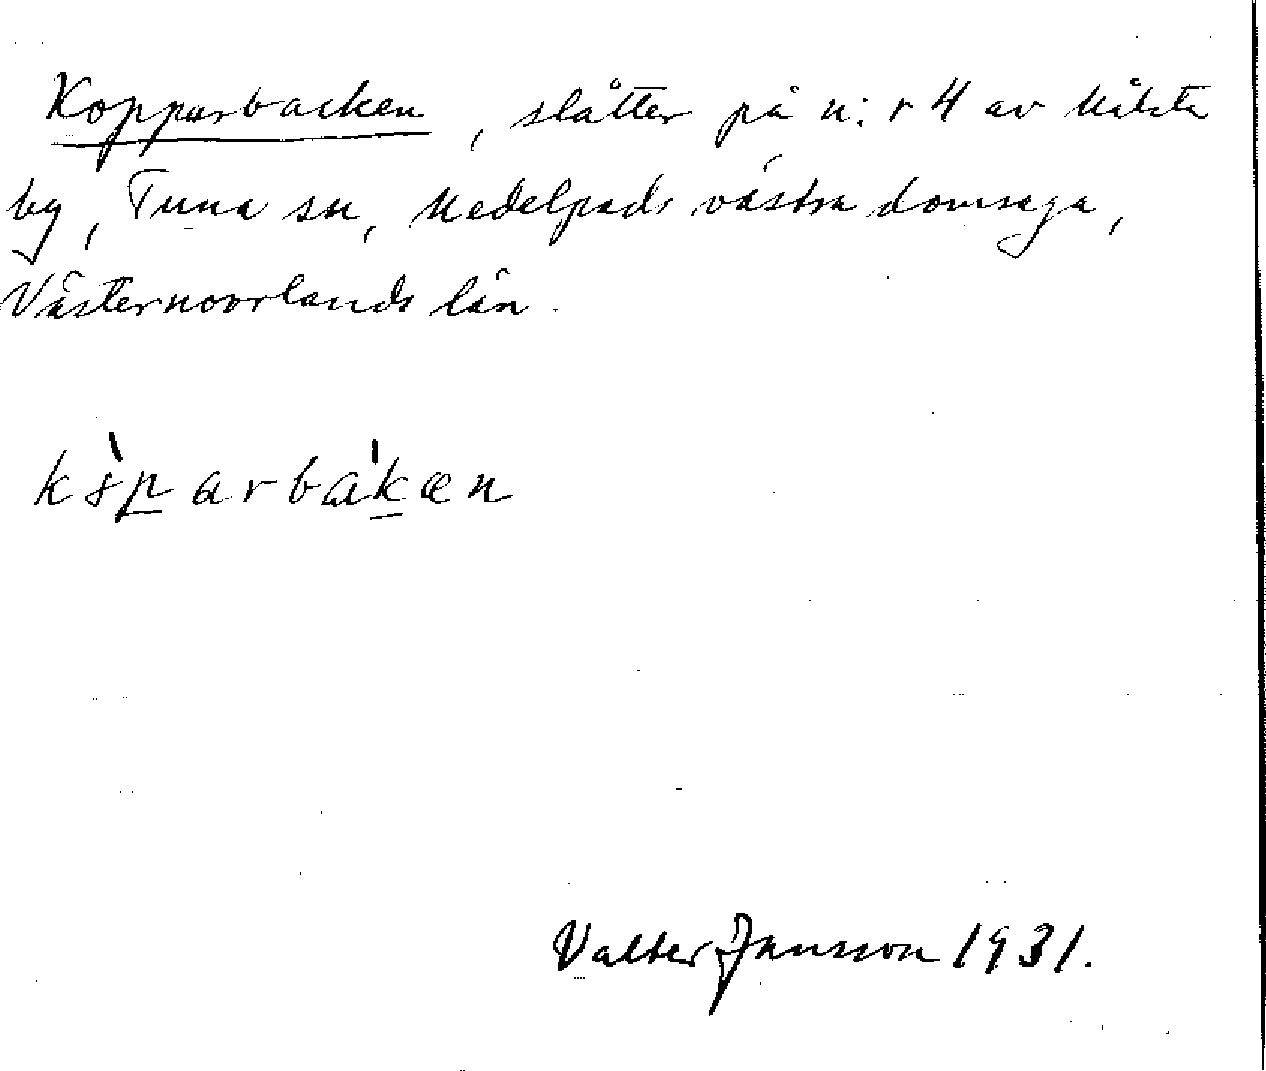 Kopparbacken, slåtter på n:r 4 av
by, Tuna sn, Medelpads västra domsaga,
Västernorrlands län.
Valter Jansson 1931.